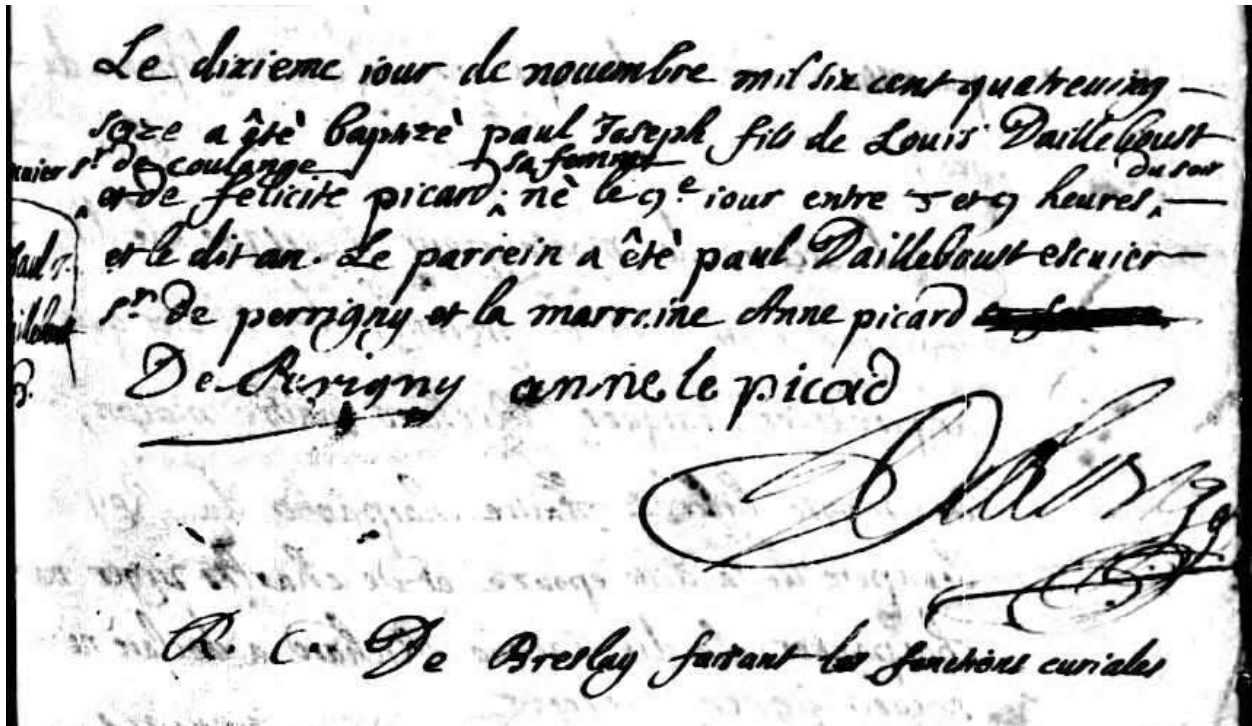 Le dixieme iour de nouembre mil six cent quatreuing
seize a êtè baptizè paul Joseph fils de Louis Dailleboust
de coulange sa femme du soir
et de félicité picard, nè le 9e iour entre 5 et 9 heures,
et le dit an. Le parrein a êtè paul Dailleboust escuier
sr. De perrigny et la marreine Anne picard
De Perigny anne le picad
R. C. De Breslay faisant les fonctions curiales